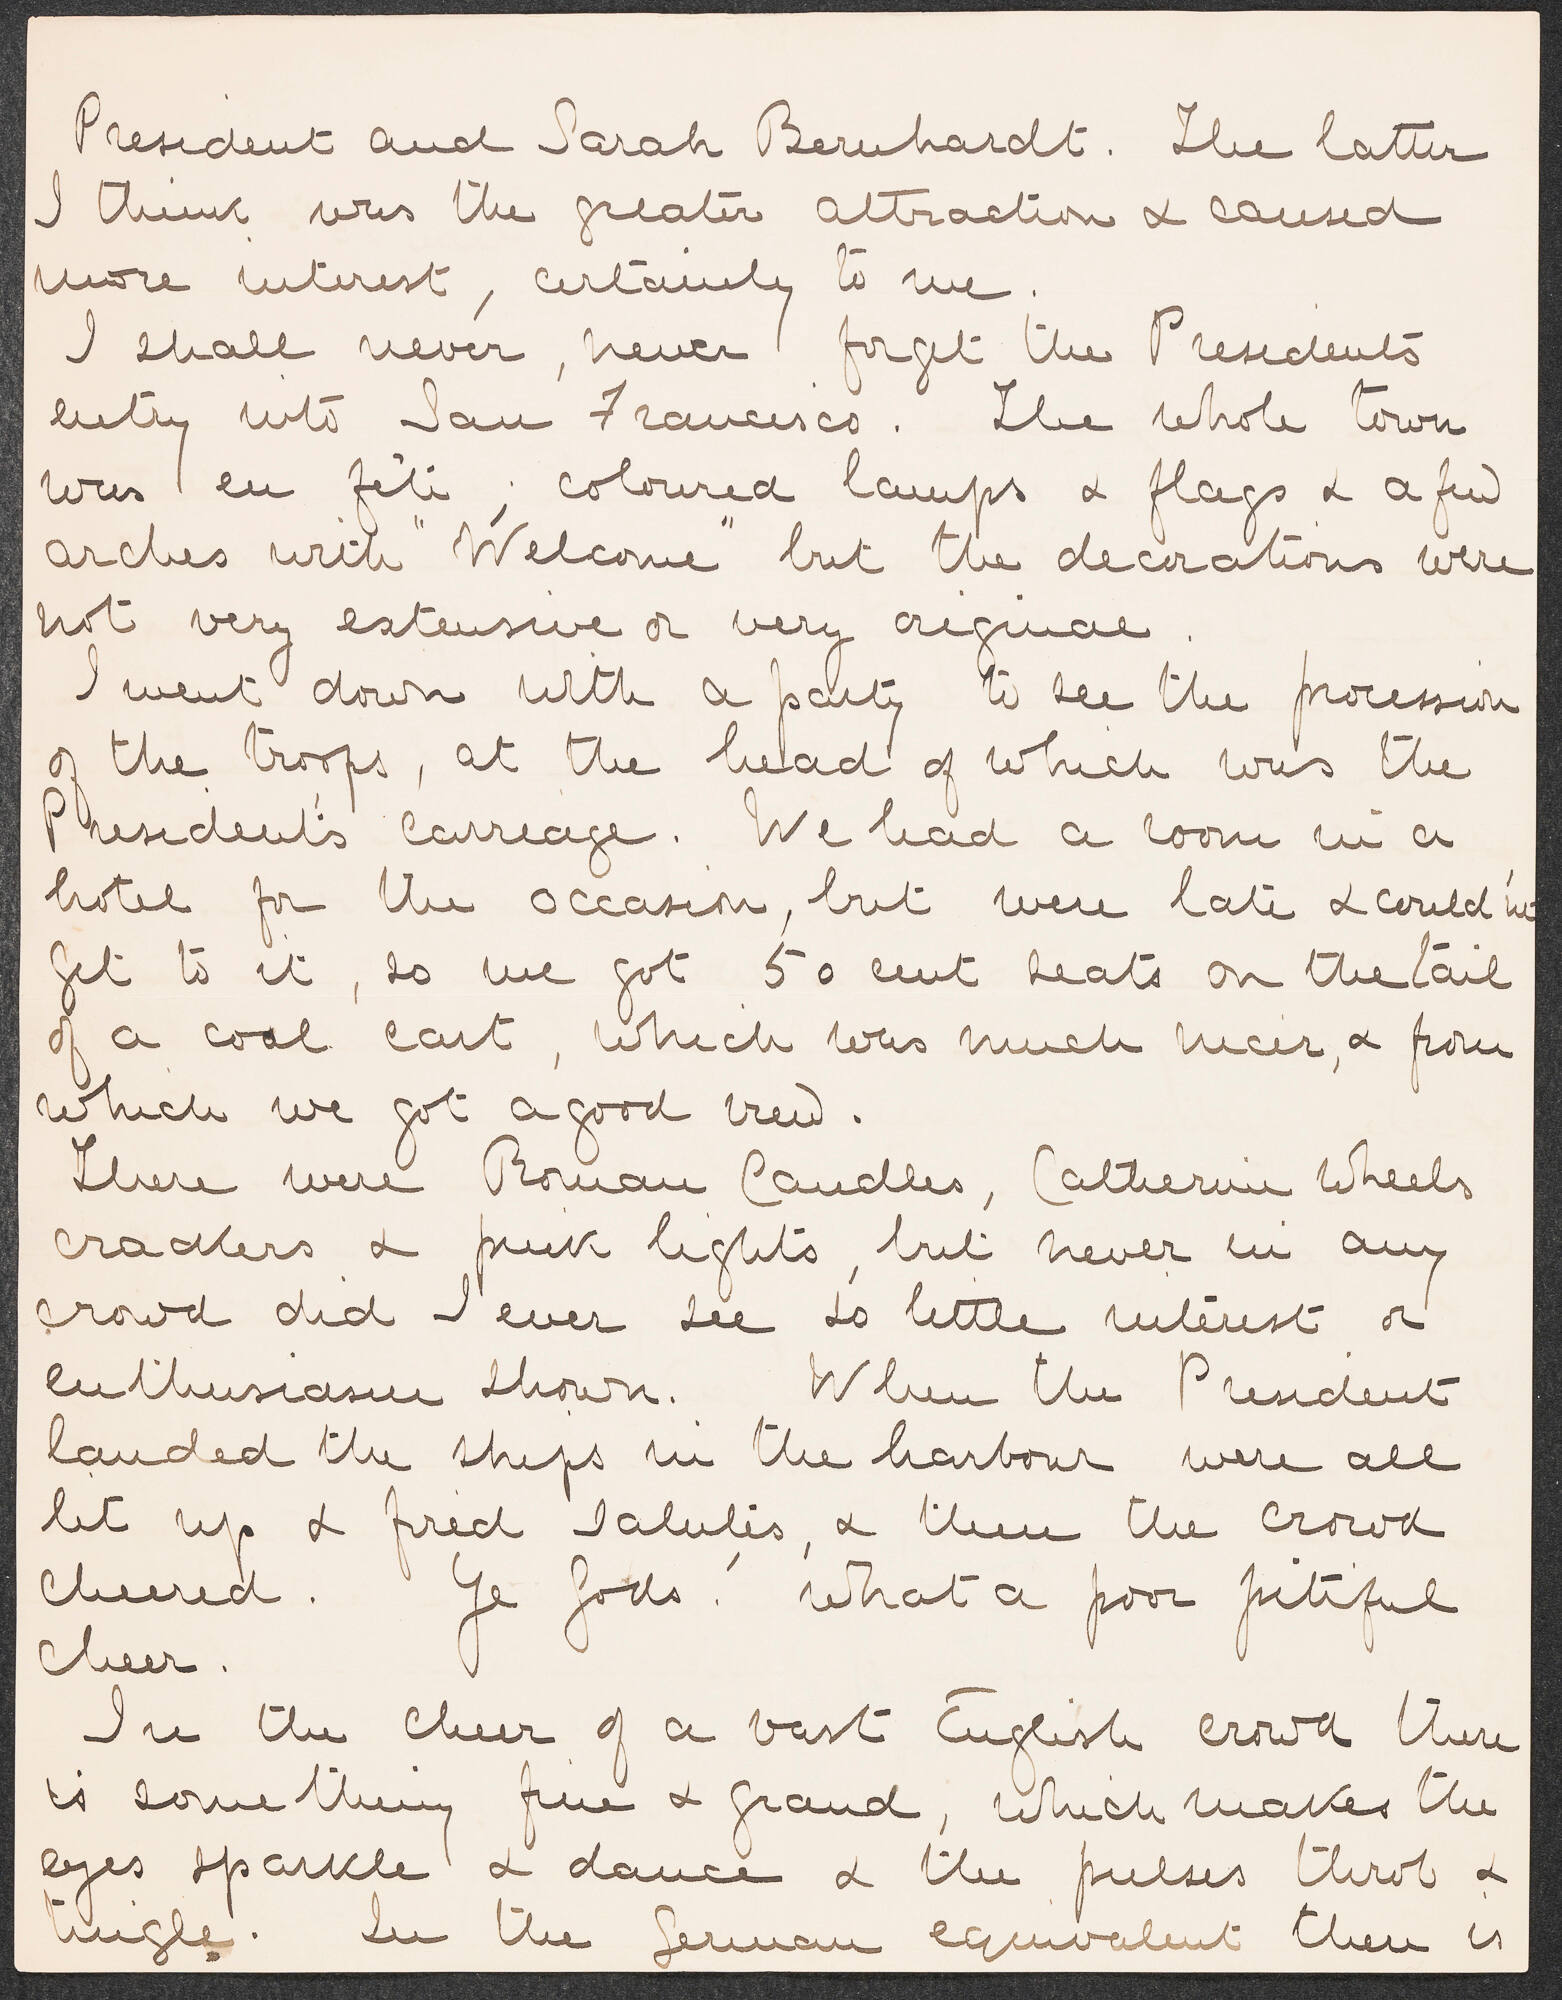 President and Sarah Bernhardt. The latter
I think was the greater attraction & caused
more interest, certainly to me.
I shall never, never forget the Presidents
entry into San Francisco. The whole town
was en fête; coloured lamps & flags & a few
arches with "Welcome" but the decorations were
not very extensive or very original.
I went down with a party to see the procession
of the troops, at the head of which was the
President's carriage. We had a room in a
hotel for the occasion, but were late & could n't
get to it, so we got 50 cent seats on the tail
of a coal cart, which was much nicer, & from
which we got a good view.
There were Roman Candles, Catherine Wheels
crackers & pink lights, but never in any
crowd did I ever see so little interest or
enthusiasm shown. When the President
landed the ships in the harbour were all
lit up & fired salutes, & then the crowd
cheered. Ye Gods! what a poor pitiful
cheer.
In the cheer of a vast English crowd there
is something fine & grand, which makes the
eyes sparkle & dance & the pulses throb &
tingle. In the German equivalent there is